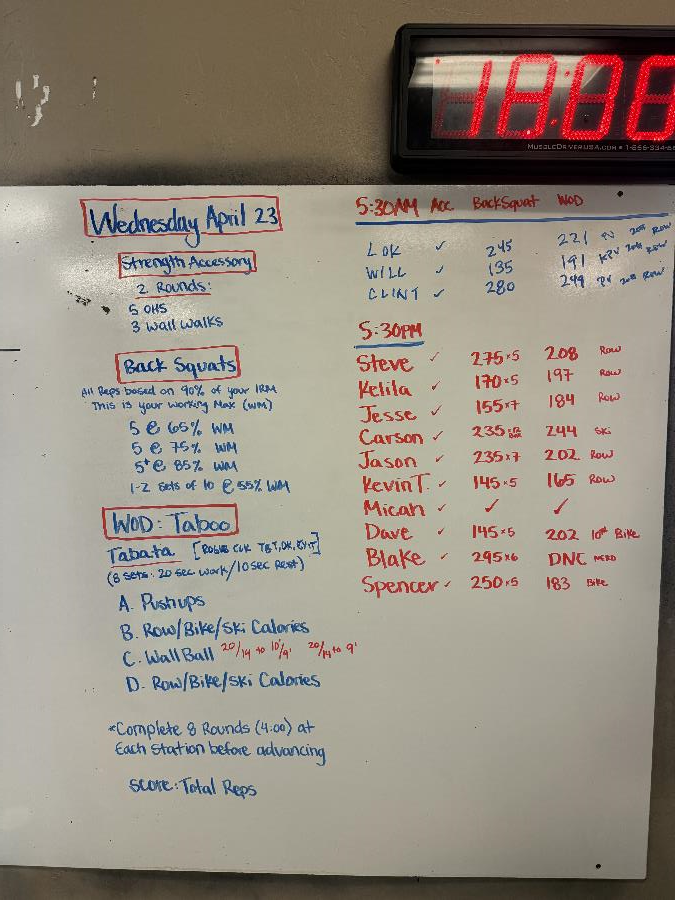 18:08
MUSCLEDRIVERUSA.COM • 1-866-334-6
Wednesday April 23
Strength Accessory
2 Rounds:
5 OHS
3 Wall Walks
Back Squats
All Reps based on 90% of your 1RM
This is your working Max (WM)
5 @ 65% WM
5 @ 75% WM
5+ @ 85% WM
1-2 sets of 10 @ 55% WM
WOD: Taboo
Tabata
(8 sets: 20 sec work/10 sec Rest)
A. Pushups
B. Row/Bike/Ski Calories
C. Wall Ball 20/14 to 10'/9' 20/14 to 9'
D. Row/Bike/Ski Calories
*Complete 8 Rounds (4:00) at
Each Station before advancing
Score: Total Reps
5:30AM Acc BackSquat WOD
LOK ✓ 245 221 Row
WILL ✓ 135 191 Row
CLINT ✓ 280 249 Row
5:30PM
Steve ✓ 275x5 208 Row
Kelila ✓ 170x5 197 Row
Jesse ✓ 155x7 184 Row
Carson ✓ 235 244 Ski
Jason ✓ 235x7 202 Row
Kevin T. ✓ 145x5 165 Row
Micah ✓ ✓ ✓
Dave ✓ 145x5 202 10# Bike
Blake ✓ 295x6 DNC
Spencer ✓ 250x5 183 Bike